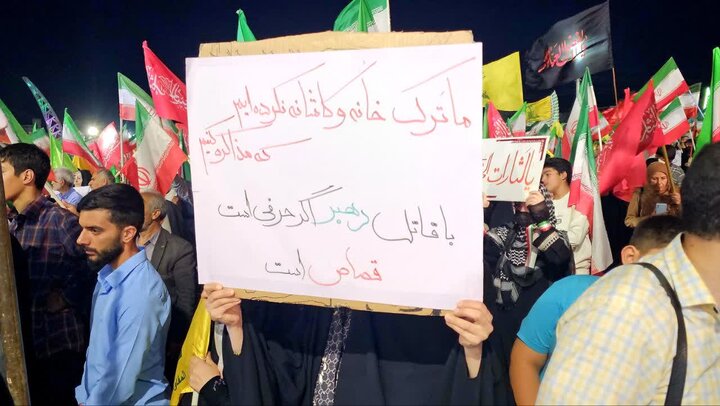 ما ترک خانه و کاشانه نکرده ایم
که مذاکره کنیم
با قاتل رهبر اگر حرفی است
قصاص است
یالثارات